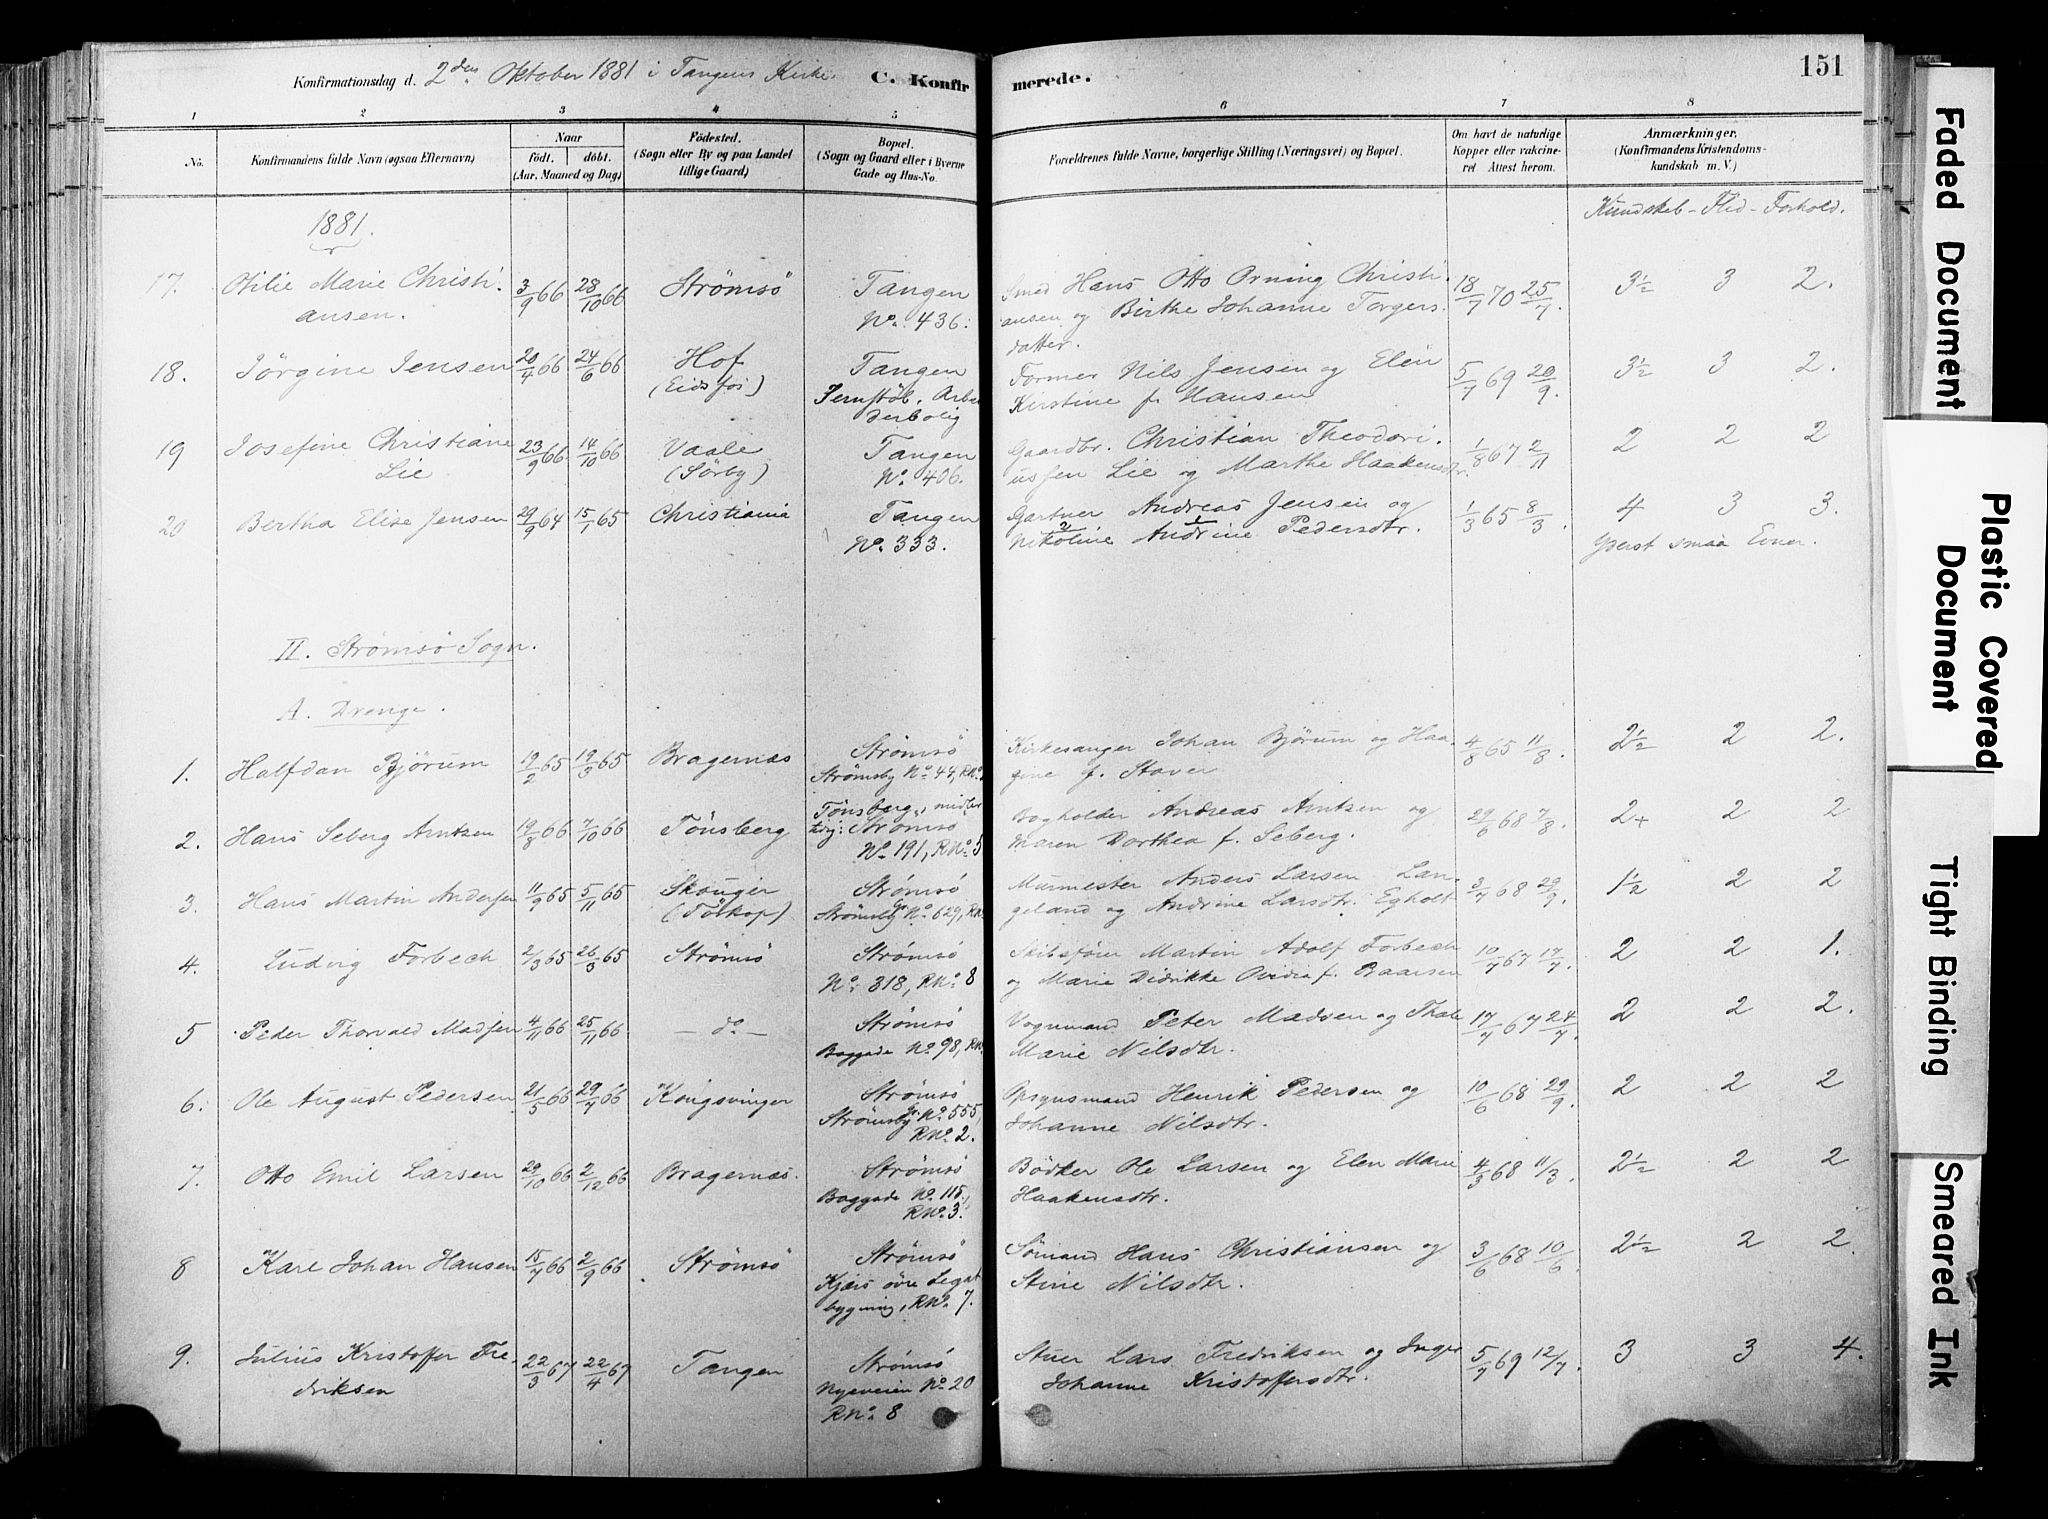 151
Konfirmationsdag d. 2den Oktober 1881 i Tangens Kirke. C. Konfirmerede.
1 2 3 4 5 6 7 8
No. Konfirmandens fulde Navn (ogsaa Efternavn) Naar født. døbt. (Aar, Maaned og Dag) Fødested. (Sogn eller By og paa Landet tillige Gaard) Bopæl. (Sogn og Gaard eller i Byerne Gade og Hus-No. Forældrenes fulde Navne, borgerlige Stilling (Næringsvei) og Bopæl. Om havt de naturlige Kopper eller vakcineret Attest herom. Anmærkninger. (Konfirmandens Kristendomskundskab m. V.)
Kundskab - Flid - Forhold.
1881.
17. Otilie Marie Christi- 3/9 66 28/10 66 Strømsö Tangen Smed Hans Otto Orning Christi- 18/7 70 25/7 3½ 3 2.
ansen. No. 436. ansen og Birthe Johanne Torgers-
datter.
18. Jörgine Jensen 20/4 66 24/6 66 Hof Tangen Former Nils Jensen og Elen 5/7 69 20/9. 3½ 3 2.
(Eidsfos) Jernstöb. Arbei- Kirstine f. Hansen
derbolig
19 Josefine Christiane 23/9 66 14/10 66 Vaale Tangen Gaardbr. Christian Theodori- 1/8 67 2/11 2 2 2
Lie (Sörby) No. 406. ussen Lie og Marthe Haakensdtr.
20 Bertha Elise Jensen 29/9 64 15/1 65 Christiania Tangen Gartner Andreas Jensen og 1/3 65 8/3 4 3 3.
No. 333. Nikoline Andrine Pedersdtr. Yderst smaa Evner.
II. Strømsö Sogn.
A. Drenge.
1. Halfdan Bjørum 19/2 65 19/3 65 Bragernæs Strømsö Kirkesanger Johan Bjørum og Haa- 4/8 65 11/8 2½ 2 2.
Strømsby No. 44, RNo. gine f. Staver
2. Hans Seberg Arntzen 19/8 66 7/10 66 Tönsberg Tønsberg, midler- Bogholder Andreas Arntzen og 29/6 68 7/8. 2+ 2 2
tidig: Strømsö Maren Dorthea f. Seberg.
No. 191, RNo. 5
3. Hans Martin Andersen 11/9 65 5/11 65 Skouger Strömsö Murmester Anders Larsen Lan- 3/7 68 29/9. 1½ 2 2
(Töskop) Strømsby No. 629, RNo. geland og Andrine Larsdtr. Egholt
4. Ludvig Forbech 2/3 65 26/3 65 Strømsö Strømsö Skibsfører Martin Adolf Forbech 10/7 67 17/7. 2 2 1.
No. 318, RNo. 8 og Marie Didrikke f. Baarsen
5 Peder Thorvald Madsen 4/11 66 25/11 66 — do — Strømsö Vognmand Peter Madsen og Thale 17/7 67 24/7 2 2 2.
Baggade No. 98, RNo. Marie Nilsdtr.
6. Ole August Pedersen 21/5 66 29/7 66 Kongsvinger Strømsö Opsynsmand Henrik Pedersen og 10/6 68 29/9. 2 2 2
Strömsby No. 555, Johanne Nilsdtr.
RNo. 2.
7. Otto Emil Larsen 29/10 66 2/12 66 Bragernæs. Strømsö Bödker Ole Larsen og Elen Marie 4/3 68 11/3. 2½ 2 2
Baggade No. 115, Haakensdtr.
RNo. 3.
8 Karl Johan Hansen 15/7 66 2/9 66 Strømsö Strømsö Sömand Hans Christiansen og 3/6 68 10/6. 2½ 2 2.
Kjærs øvre Legat- Stine Nilsdtr.
bygning, RNo. 7.
9. Julius Kristoffer Fre- 22/3 67 22/4 67 Tangen Strømsö Stuer Lars Fredriksen og Inger 5/7 69 12/7. 3 3 4.
driksen Nyeveien No. 20 Johanne Kristoffersdtr.
RNo. 8
Faded Document
Plastic Covered Document
Tight Binding
Smeared Ink